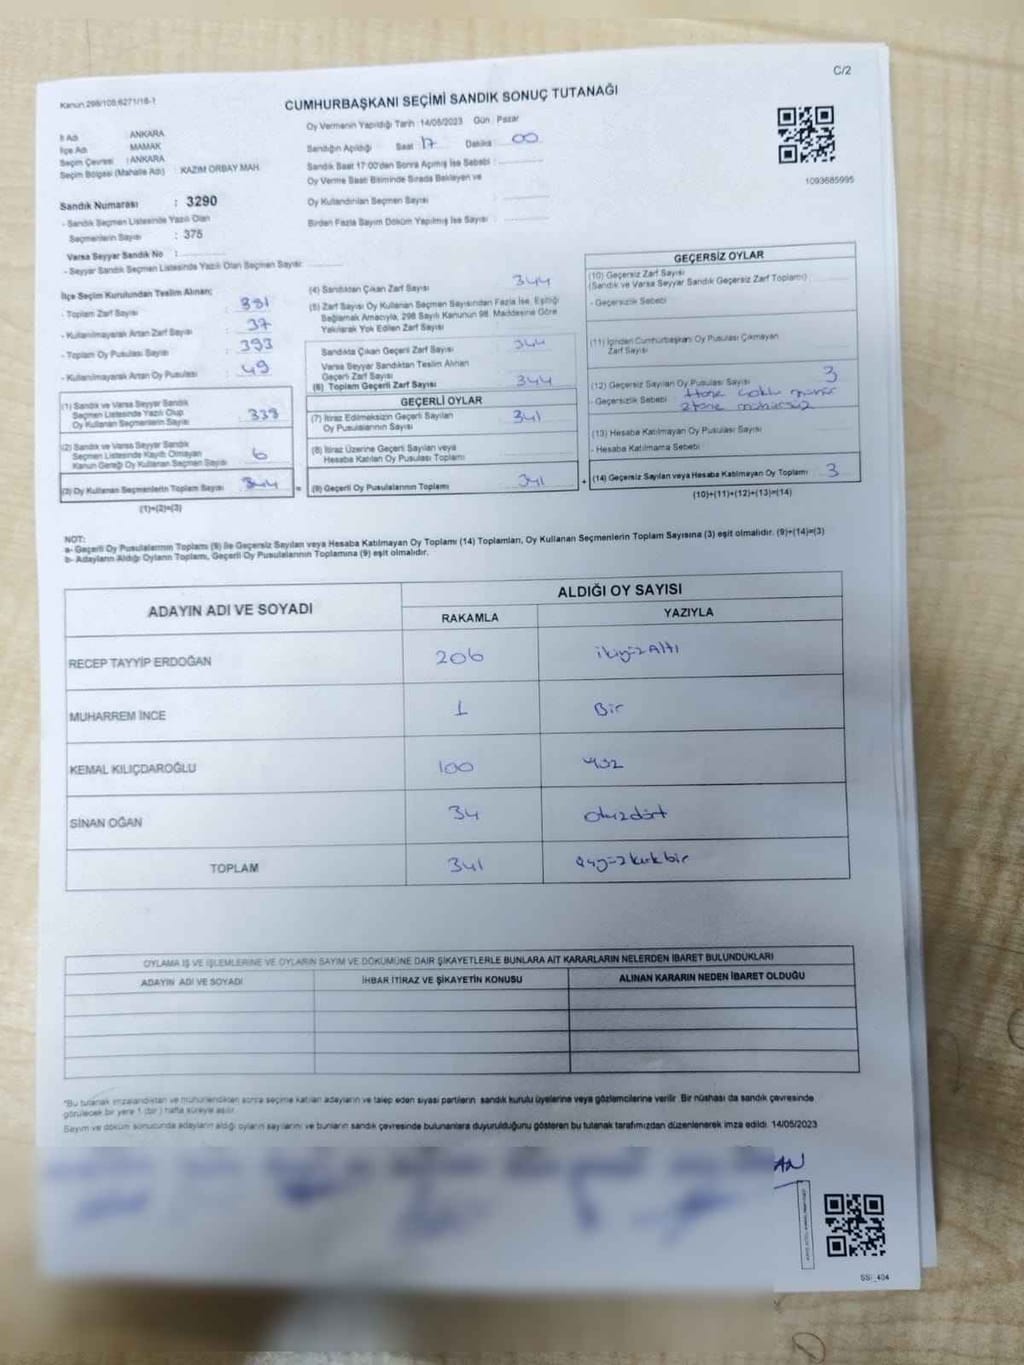 C/2
Kanun 298/105,6271/18-1
CUMHURBAŞKANI SEÇİMİ SANDIK SONUÇ TUTANAĞI
İl Adı : ANKARA
İlçe Adı : MAMAK
Seçim Çevresi : ANKARA
Seçim Bölgesi (Mahalle Adı) : KAZIM ORBAY MAH.
Oy Vermenin Yapıldığı Tarih : 14/05/2023 Gün : Pazar
Sandığın Açıldığı Saat 17 Dakika 00
Sandık Saat 17:00'den Sonra Açılmış İse Sebebi :
Oy Verme Saati Bitiminde Sırada Bekleyen ve
Oy Kullandırılan Seçmen Sayısı :
Birden Fazla Sayım Döküm Yapılmış İse Sayısı :
1093685995
Sandık Numarası : 3290
- Sandık Seçmen Listesinde Yazılı Olan
Seçmenlerin Sayısı : 375
Varsa Seyyar Sandık No :
- Seyyar Sandık Seçmen Listesinde Yazılı Olan Seçmen Sayısı:
İlçe Seçim Kurulundan Teslim Alınan;
- Toplam Zarf Sayısı : 381
- Kullanılmayarak Artan Zarf Sayısı : 37
- Toplam Oy Pusulası Sayısı : 393
- Kullanılmayarak Artan Oy Pusulası : 49
(1) Sandık ve Varsa Seyyar Sandık
Seçmen Listesinde Yazılı Olup
Oy Kullanan Seçmenlerin Sayısı 338
(2) Sandık ve Varsa Seyyar Sandık
Seçmen Listesinde Kayıtlı Olmayan
Kanun Gereği Oy Kullanan Seçmen Sayısı 6
(3) Oy Kullanan Seçmenlerin Toplam Sayısı 344
(1)+(2)=(3)
(4) Sandıktan Çıkan Zarf Sayısı 344
(5) Zarf Sayısı Oy Kullanan Seçmen Sayısından Fazla İse, Eşitliği
Sağlamak Amacıyla, 298 Sayılı Kanunun 98. Maddesine Göre
Yakılarak Yok Edilen Zarf Sayısı
Sandıkta Çıkan Geçerli Zarf Sayısı 344
Varsa Seyyar Sandıktan Teslim Alınan
Geçerli Zarf Sayısı
(6) Toplam Geçerli Zarf Sayısı 344
GEÇERLİ OYLAR
(7) İtiraz Edilmeksizin Geçerli Sayılan
Oy Pusulalarının Sayısı 341
(8) İtiraz Üzerine Geçerli Sayılan veya
Hesaba Katılan Oy Pusulası Toplamı
= (9) Geçerli Oy Pusulalarının Toplamı 341
GEÇERSİZ OYLAR
(10) Geçersiz Zarf Sayısı
(Sandık ve Varsa Seyyar Sandık Geçersiz Zarf Toplamı)
- Geçersizlik Sebebi
(11) İçinden Cumhurbaşkanı Oy Pusulası Çıkmayan
Zarf Sayısı
(12) Geçersiz Sayılan Oy Pusulası Sayısı 3
- Geçersizlik Sebebi : 1 tane çoklu mühür
2 tane mühürsüz
(13) Hesaba Katılmayan Oy Pusulası Sayısı
- Hesaba Katılmama Sebebi
+ (14) Geçersiz Sayılan veya Hesaba Katılmayan Oy Toplamı 3
(10)+(11)+(12)+(13)=(14)
NOT:
a- Geçerli Oy Pusulalarının Toplamı (9) ile Geçersiz Sayılan veya Hesaba Katılmayan Oy Toplamı (14) Toplamları, Oy Kullanan Seçmenlerin Toplam Sayısına (3) eşit olmalıdır. (9)+(14)=(3)
b- Adayların Aldığı Oyların Toplamı, Geçerli Oy Pusulalarının Toplamına (9) eşit olmalıdır.
ADAYIN ADI VE SOYADI ALDIĞI OY SAYISI
RAKAMLA YAZIYLA
RECEP TAYYİP ERDOĞAN 206 ikiyüzAltı
MUHARREM İNCE 1 Bir
KEMAL KILIÇDAROĞLU 100 yüz
SİNAN OĞAN 34 otuzdört
TOPLAM 341 üçyüzkırkbir
OYLAMA İŞ VE İŞLEMLERİNE VE OYLARIN SAYIM VE DÖKÜMÜNE DAİR ŞİKAYETLERLE BUNLARA AİT KARARLARIN NELERDEN İBARET BULUNDUKLARI
ADAYIN ADI VE SOYADI İHBAR İTİRAZ VE ŞİKAYETİN KONUSU ALINAN KARARIN NEDEN İBARET OLDUĞU
"Bu tutanak imzalandıktan ve mühürlendikten sonra seçime katılan adayların ve talep eden siyasi partilerin sandık kurulu üyelerine veya gözlemcilerine verilir. Bir nüshası da sandık çevresinde
görülecek bir yere 1 (bir) hafta süreyle asılır.
Sayım ve döküm sonucunda adayların aldığı oyların sayılarını ve bunların sandık çevresinde bulunanlara duyurulduğunu gösteren bu tutanak tarafımızdan düzenlenerek imza edildi. 14/05/2023
AN
SSİ_404